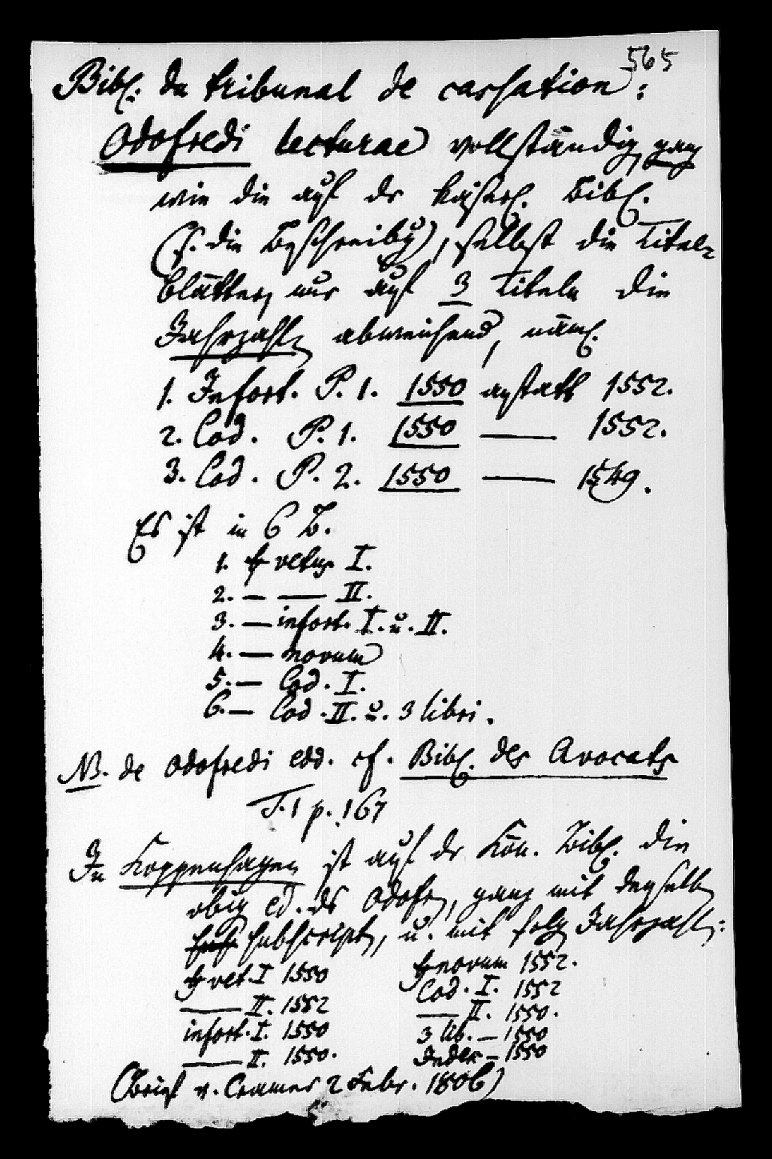 565
Bibl. du tribunal de cassation:
Odofredi lecturae vollständig, ganz
wie die auf dr kaiserl. Bibl.
(s. die Beschreibg), selbst die Titel-
blätter, nur auf 3 Titeln die
Jahrzahl abweichend, näml.
1. Infort. P. 1. 1550 anstatt 1552.
2. Cod. P. 1. 1550 — 1552.
3. Cod. P. 2. 1550 — 1549.
Es ist in 6 B.
1. ff vetus I.
2. — — II.
3. — infort. I. u. II.
4. — novum
5. — Cod. I.
6. — Cod. II. u. 3 libri.
NB. de Odofredi edd. cf. Bibl. des Avocats
T. 1 p. 167
In Koppenhagen ist auf dr Kön. Bibl. die
obig ed. ds Odofr, ganz mit denselb
subscript, u. mit folg Jahrzahl:
ff vet. I 1550 ff novum 1552.
— II. 1552 Cod. I. 1552
infort. I. 1550 — II. 1550.
— II. 1550. 3 lib. — 1550
Index — 1550
(Brief v. Cramer 2 Febr. 1806)